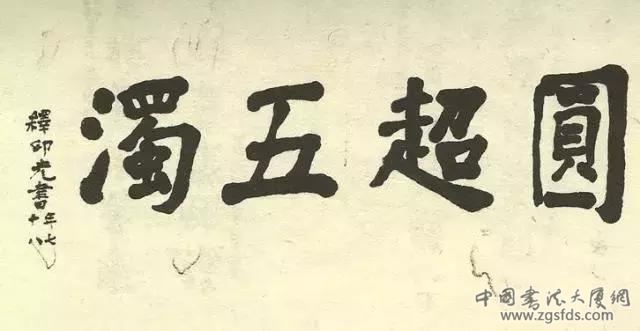 圓超五濁
釋印光書
年七
十八
中國書法大廈網
www.zgsfds.com